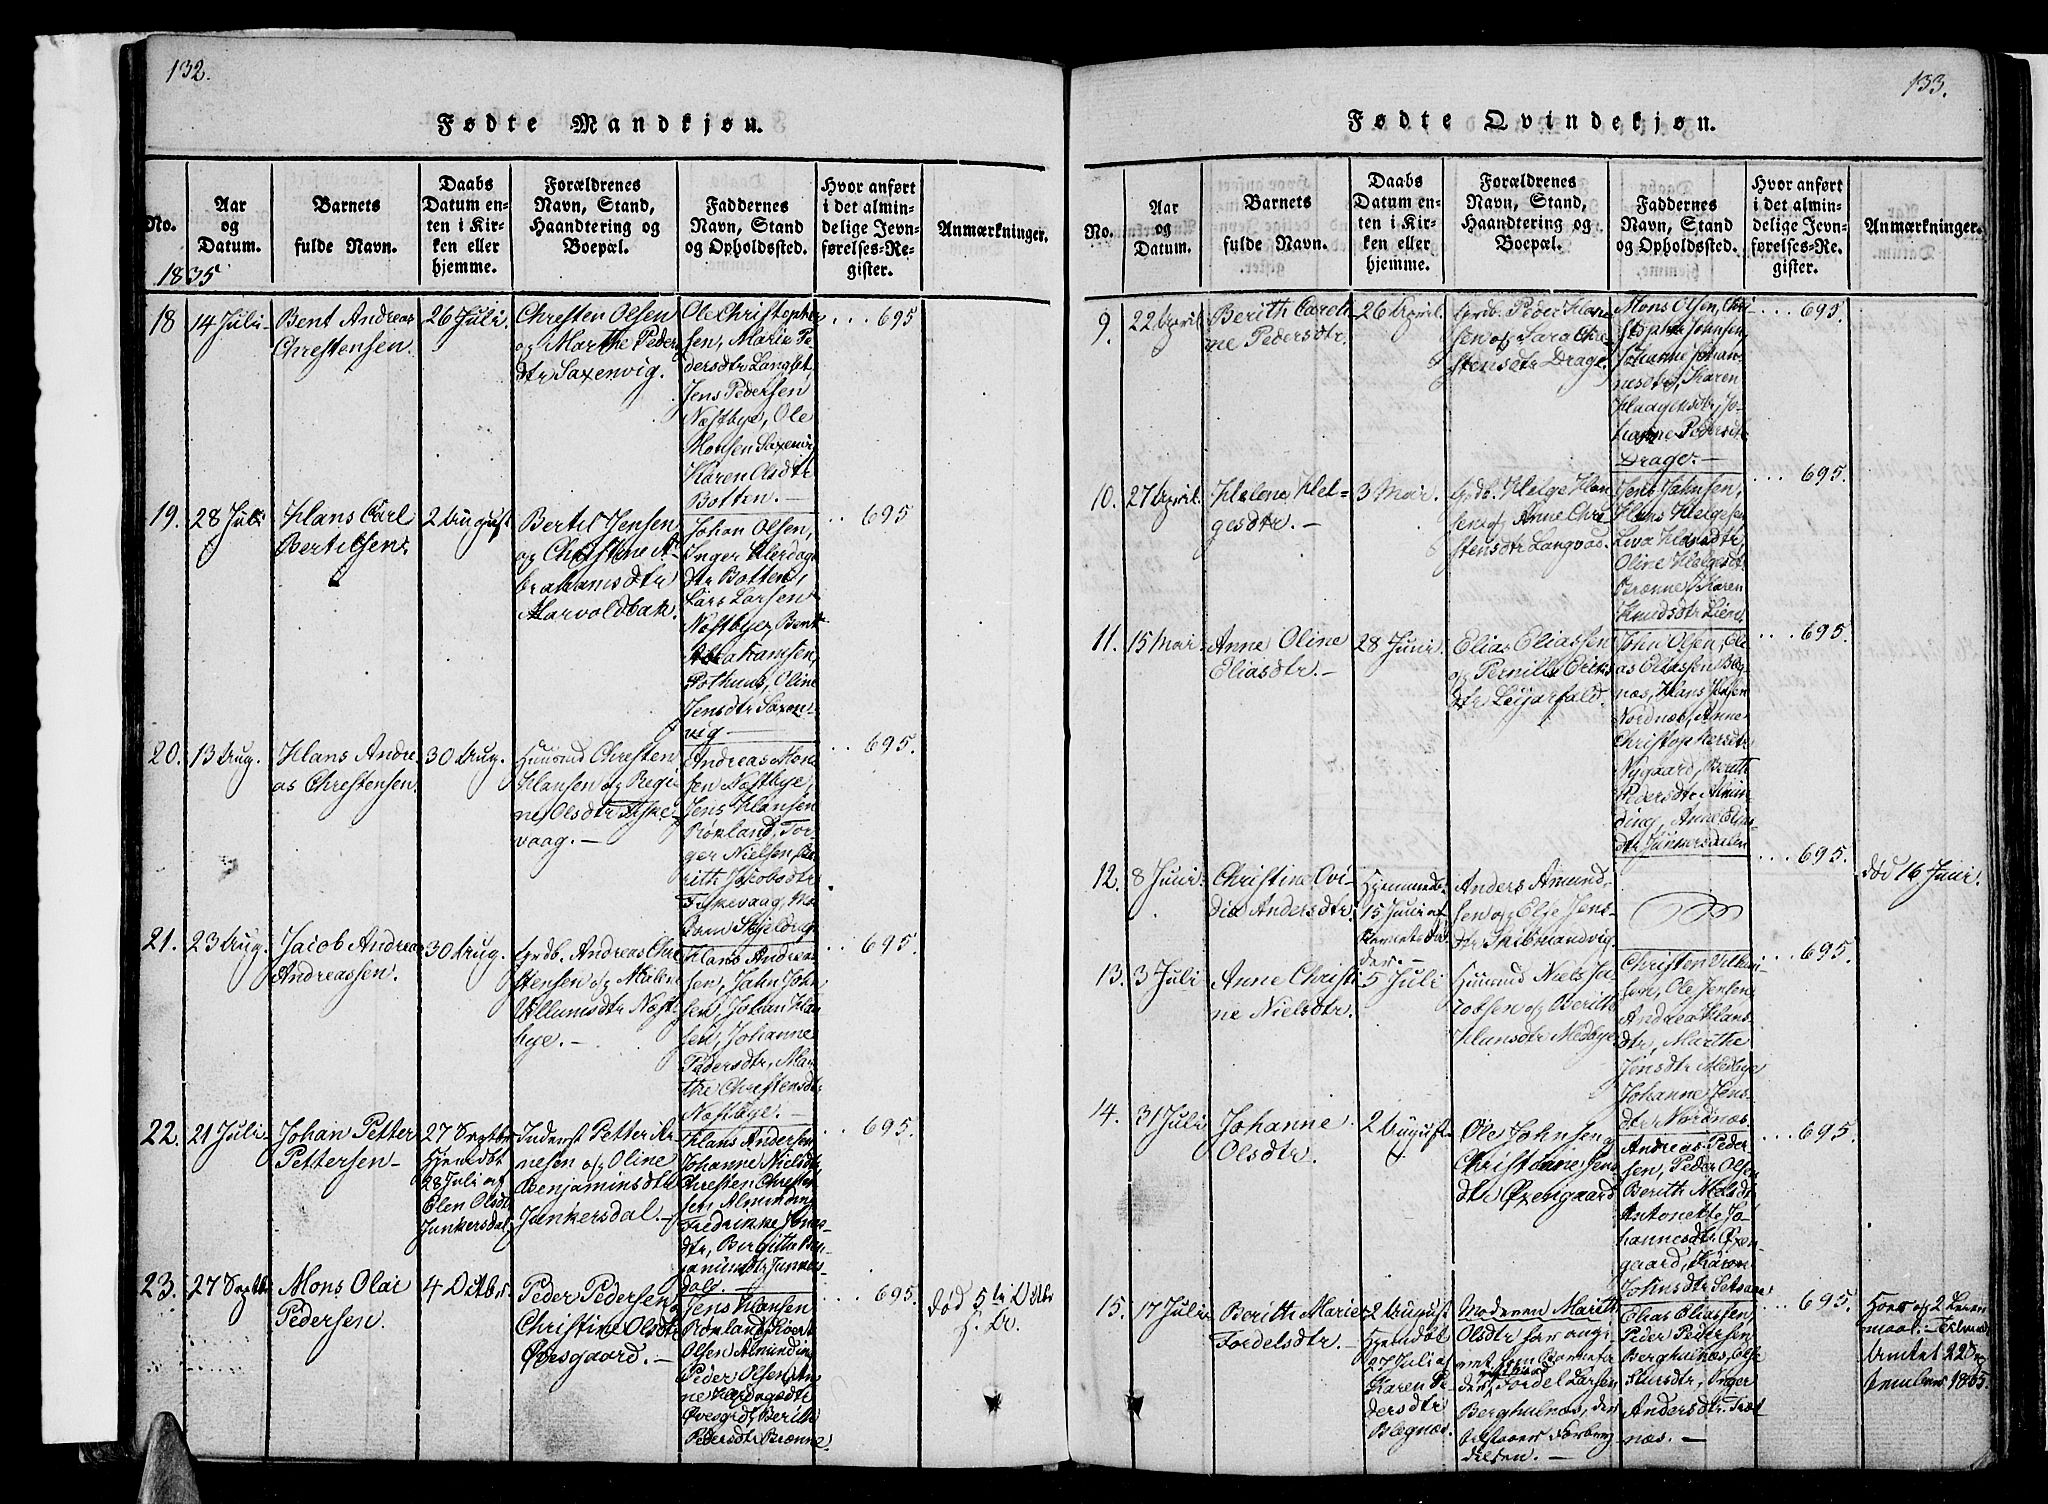 132.
Fødte Mandkjøn.
No.
Aar
og
Datum.
Barnets
fulde Navn.
Daabs
Datum en-
ten i Kir-
ken eller
hjemme.
Forældrenes
Navn, Stand,
Haandtering og
Boepæl.
Faddernes
Navn, Stand
og Opholdssted.
Hvor anført
i det almin-
delige Jevn-
førelses-Re-
gister.
Anmærkninger.
1835
18
14 Juli
Bent Andreas
Chrestensen.
26 Juli.
Chresten Olsen
og Marthe Peders
dtr Saxenvig.
Ole Christopher
sen, Maria Pe
dersdtr Langset,
Jens Pedersen
Næstbye, Ole
Monsen Saxenvig
Karen Olsdtr
Botten. —
... 695
19.
28 Juli
Hans Carl
Bertilsen.
2 August
Bertil Jensen
og Christine A-
brahamsdtr
Harvoldbak.
Johan Olsen,
Inger
dtr Botten,
Lars Larsen
Næstbye, Bent
Abrahamsen,
Pothuus, Oline
Jensdtr Saxen-
vig —
.. 695
20.
13 Aug.
Hans Andre
as Chrestensen.
30 Aug.
Huusmd Chresten
Hansen og Regi
ne Olsdtr Fiske
vaag. —
Andreas Mon
sen Næstbye,
Jens Hansen
Rørland, Tor-
ger Nielsen, Be
rith Jacobsdtr
Fiskevaag,
.. 695.
21.
23 Aug.
Jacob Andreas
Andreassen.
30 Aug.
Grdb. Andreas Chre
stensen og Malene
Villumsdtr Næst-
bye. —
Hans Andreas
sen, John John
sen, Johan Han
sen, Johanne
Pedersdtr, Mar
the Chrestensdtr
Næstbye. —
.. 695.
22.
21 Juli
Johan Petter
Pettersen
27 Septbr
Hjemedøbt
28 Juli af
Elen Olsdtr
Junkersdal.
Inderst Petter Ar
nesen og Oline
Benjaminsdtr
Junkersdal. —
Hans Andersen
Johanne Nielsdtr
Chresten Chresten
sen Alminding
Fredrikke Jens
dtr, Bergitha Ben
jaminsdtr Junkers
dal. —
.. 695.
23.
27 Septbr
Mons Olai
Pedersen.
4 Octbr.
Peder Pedersen
Christine Olsdtr
Øvesgaard. —
Jens Hansen
Rørland, Sivert
Olsen Alminding
Peder Olsen, An
ne
Øvesgrd, Berith
Pedersdtr Brønne
... 695.
død 5te Octbr
133.
Fødte Qvindekjøn.
No.
Aar
og
Datum.
Barnets
fulde Navn.
Daabs
Datum en-
ten i Kir-
ken eller
hjemme.
Forældrenes
Navn, Stand,
Haandtering og
Boepæl.
Faddernes
Navn, Stand
og Opholdssted.
Hvor anført
i det almin-
delige Jevn-
førelses-Re-
gister.
Anmærkninger.
9.
22 April
Berith Caroli
ne Pedersdtr.
26 April.
Grdb. Peder Han
sen og Sara Chre
stensdtr Drage.
Mons Olsen, Chri
stopher Johnsen,
Johanne Johan
nesdtr, Karen
Haagensdtr, Jo-
hanne Pedersdtr
Drage. —
.... 695.
10.
27 April.
Helene Hel-
gesdtr. —
3 Mai.
Grdb. Helge Han
sen og Anne Chre
stensdtr Langvad.
Jens Johnsen,
Hans Helgesen
Oline Helgesdtr
Brønne, Karen
Knudsdtr Lien.
... 695.
11.
15 Mai
Anne Oline
Eliasdtr. —
28 Juni
Elias Eliassen
og Pernille Eriks
dtr Leijarfald.
John Olsen, Eli
as Eliassen Bleg
næs, Hans Jensen
Nordnæs, Anne
Christophersdtr
Nygaard, Berith
Pedersdtr Almin
ding, Anne Elias
dtr Junkersdalen
.... 695.
12.
8 Juni
Christine Ovi
dia Andersdtr.
Hjemmedøbt
15 Juni af
Barnets Fa
der. —
Anders Amund
sen og Else Jens-
dtr Skibmandvig.
.... 695.
død 16 Juni.
13.
3 Juli
Anne Christi
ne Nielsdtr.
5 Juli
Huusmd Niels Ja
cobsen og Berith
Hansdtr Medbye.
Christen Vilhum
sen, Ole Jensen
Andrea Hans
dtr, Marthe
Jensdtr Medbye
Johanne Jens
dtr Nordnæs.
.... 695.
14.
31 Juli
Johanne
Olsdtr.
2 August
Ole Johnsen og
Christine Jens
dtr Øxengaard
Andreas Peder
sen, Peder Olsen
Berith Nielsdtr
Antonette Jo-
hannesdtr Øxen
gaard, Karen
Johnsdtr
.... 695.
15.
17 Juli
Berith Marie
Tordelsdtr. —
2 August
Hjemdøbt
27 Juli af
Karen Pe
dersdtr
Blegnæs.
Moderen Marith
Olsdtr har angi
vet som Barnefa
der Tordel Larsen
Berghulnæs,
Elias Eliassen,
Peder Pedersen
Berghulnæs, Else
Inger
Andersdtr
næs. —
.... 695.